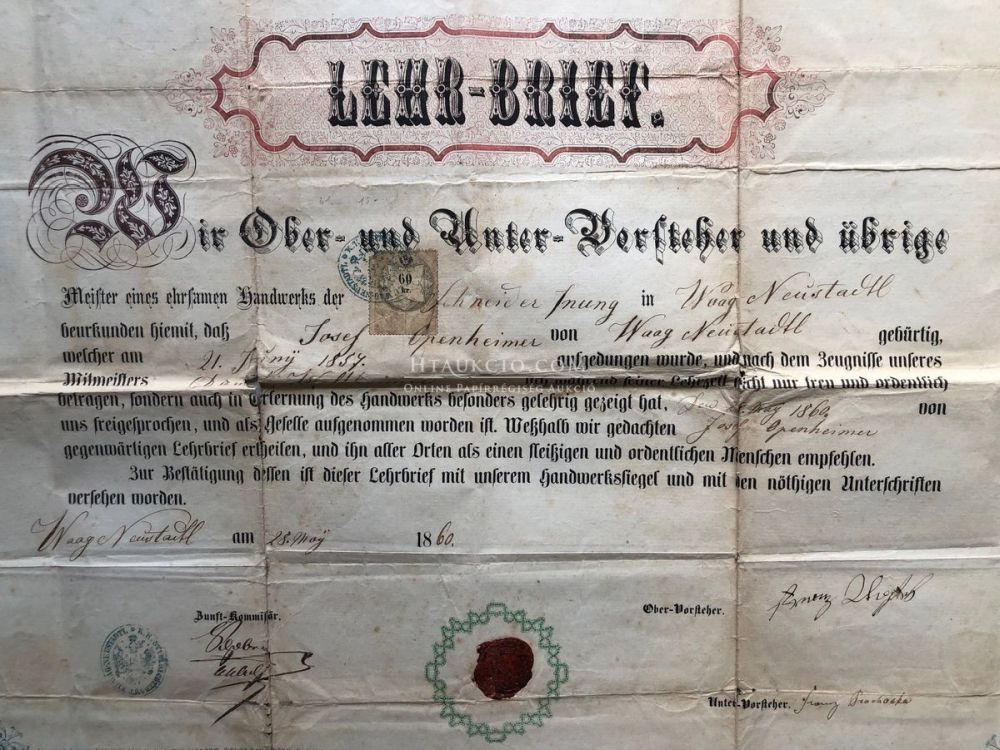 LEHR-BRIEF.
Wir Ober- und Unter-Vorsteher und übrige
Meister eines ehrsamen Handwerks der Schneider Innung in Waag Neustadtl
60 kr.
beurkunden hiemit, daß Josef Openheimer von Waag Neustadtl gebürtig,
welcher am 21. Juny 1857. aufgedungen wurde, und nach dem Zeugnisse unseres
HTAUKCIO.COM
ONLINE PAPÍRRÉGISÉG AUKCIÓ
Mitmeisters und seiner Lehrzeit nicht nur treu und ordentlich
betragen, sondern auch in Erlernung des Handwerks besonders gelehrig gezeigt hat, May 1860 von
uns freigesprochen, und als Geselle aufgenommen worden ist. Weßhalb wir gedachten Josef Openheimer
gegenwärtigen Lehrbrief ertheilen, und ihn aller Orten als einen fleißigen und ordentlichen Menschen empfehlen.
Zur Bestätigung dessen ist dieser Lehrbrief mit unserem Handwerksfiegel und mit den nöthigen Unterschriften
versehen worden.
Waag Neustadtl am 28. May 1860.
Zunft-Kommisär.
Ober-Vorsteher. Franz
Unter-Vorsteher. Franz